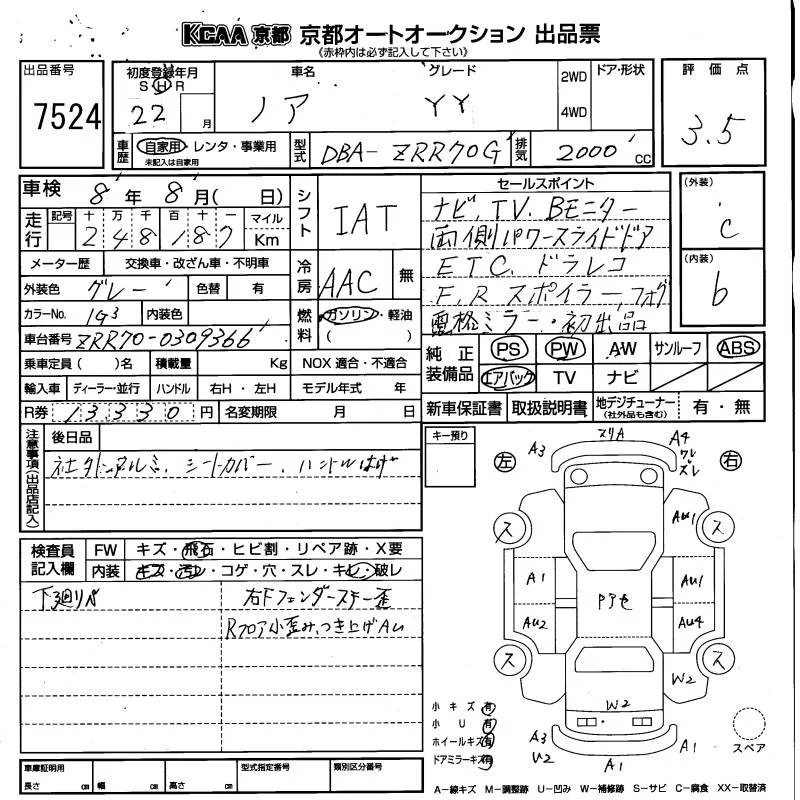 KCAA 京都 京都オートオークション 出品票
《赤枠内は必ず記入して下さい》
出品番号
7524
初度登録年月
S H R
22 月
車名
ノア
グレード
YY
2WD
4WD
ドア・形状
評価点
3.5
車歴
自家用・レンタ・事業用
未記入は自家用
型式
DBA-ZRR70G
排気
2000 cc
車検
8年 8月( 日)
走行
記号 十 万 千 百 十 一 マイル
2 4 8 1 8 7 Km
シフト
IAT
セールスポイント
ナビ、TV、Bモニター
両側パワースライドドア
ETC、ドラレコ
F,Rスポイラー、フォグ
電格ミラー・初出品
(外装)
C
(内装)
b
メーター歴
交換車・改ざん車・不明車
冷房
AAC 無
外装色
グレー
色替 有
カラーNo.
1G3
内装色
燃料
ガソリン・軽油
( )
車台番号
ZRR70-0309366
乗車定員 ( )名
積載量 Kg
NOX 適合・不適合
純正装備品
PS PW AW サンルーフ ABS
エアバック TV ナビ
輸入車
ディーラー・並行
ハンドル
右H・左H
モデル年式 年
R券
13330円
名変期限 月 日
新車保証書
取扱説明書
地デジチューナー
(社外品も含む)
有・無
注意事項(出品店記入)
後日品
社外アルミ、シートカバー、ハンドルはげ
キー預り
左
右
A3
スリA
A4
ワレ
ズレ
ス
ス
AU1
A1
AU1
Pアセ
AU2
AU4
ス
ス
W2
W2
A3
U2
A1
A1
スペア
検査員記入欄
FW
キズ・飛石・ヒビ割・リペア跡・X要
内装
キズ・汚レ・コゲ・穴・スレ・キレ・破レ
下廻りパ
右Fフェンダーステー歪
Rフロア小歪み、つき上げAu
小キズ 有
小U 有
ホイールキズ 有
ドアミラーキズ 有
車庫証明用
長さ cm
幅 cm
高さ cm
型式指定番号
類別区分番号
A-線キズ M-調整跡 U-凹み W-補修跡 S-サビ C-腐食 XX-取替済